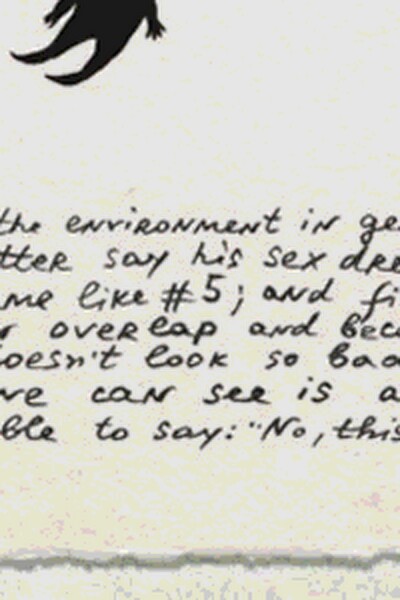 the environment in ge
tter say his sex dre
me like #5; and fi
r overlap and beco
oesn't look so bad
we can see is a
ble to say: "No, this